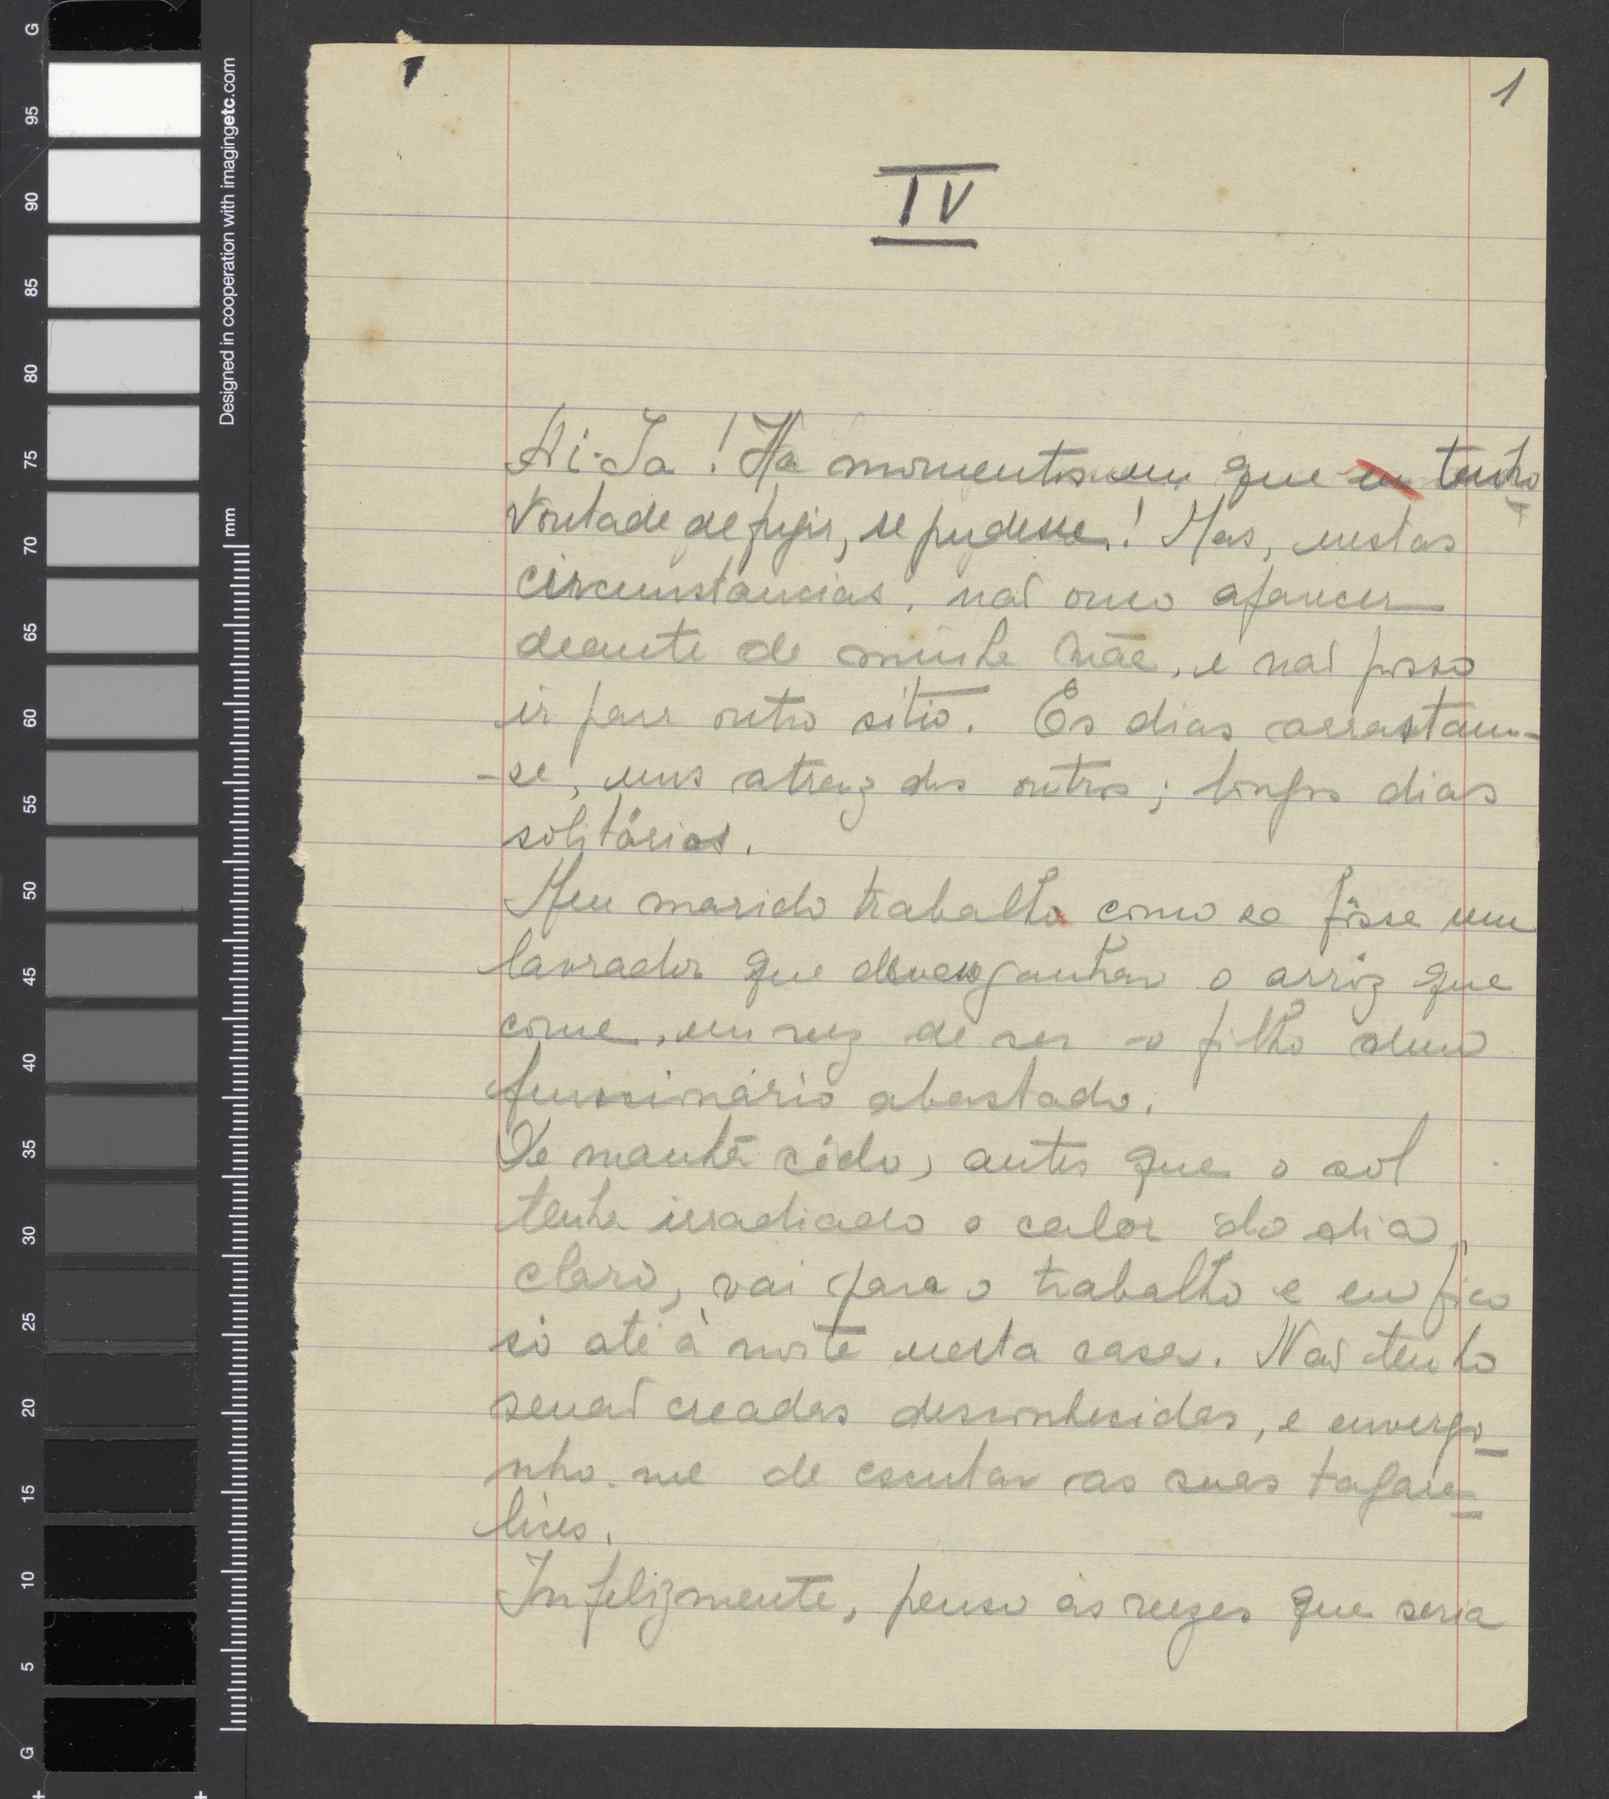 1
IV
Ai-Ja! Há momentos em que eu tenho
vontade de fugir, se pudesse! Mas, nestas
circunstancias, não ouso aparecer
deante de minha Mãe, e não posso
ir para outro sítio. Os dias arrastam-
-se, uns atraz dos outros; longos dias
solitários.
Meu marido trabalha como se fôsse um
lavrador que deve ganhar o arroz que
come, em vez de ser o filho dum
funcionário abastado.
De manhã cêdo, antes que o sol
tenha irradiado o calor do dia
claro, vai para o trabalho e eu fico
só até à noite nesta casa. Não tenho
senão creadas desconhecidas, e envergo-
nho-me de escutar as suas tagare-
lices.
Infelizmente, penso às vezes que seria
G
95
90
85
80
75
70
65
60
55
50
45
40
35
30
25
20
15
10
5
G
Designed in cooperation with imagingetc.com
mm